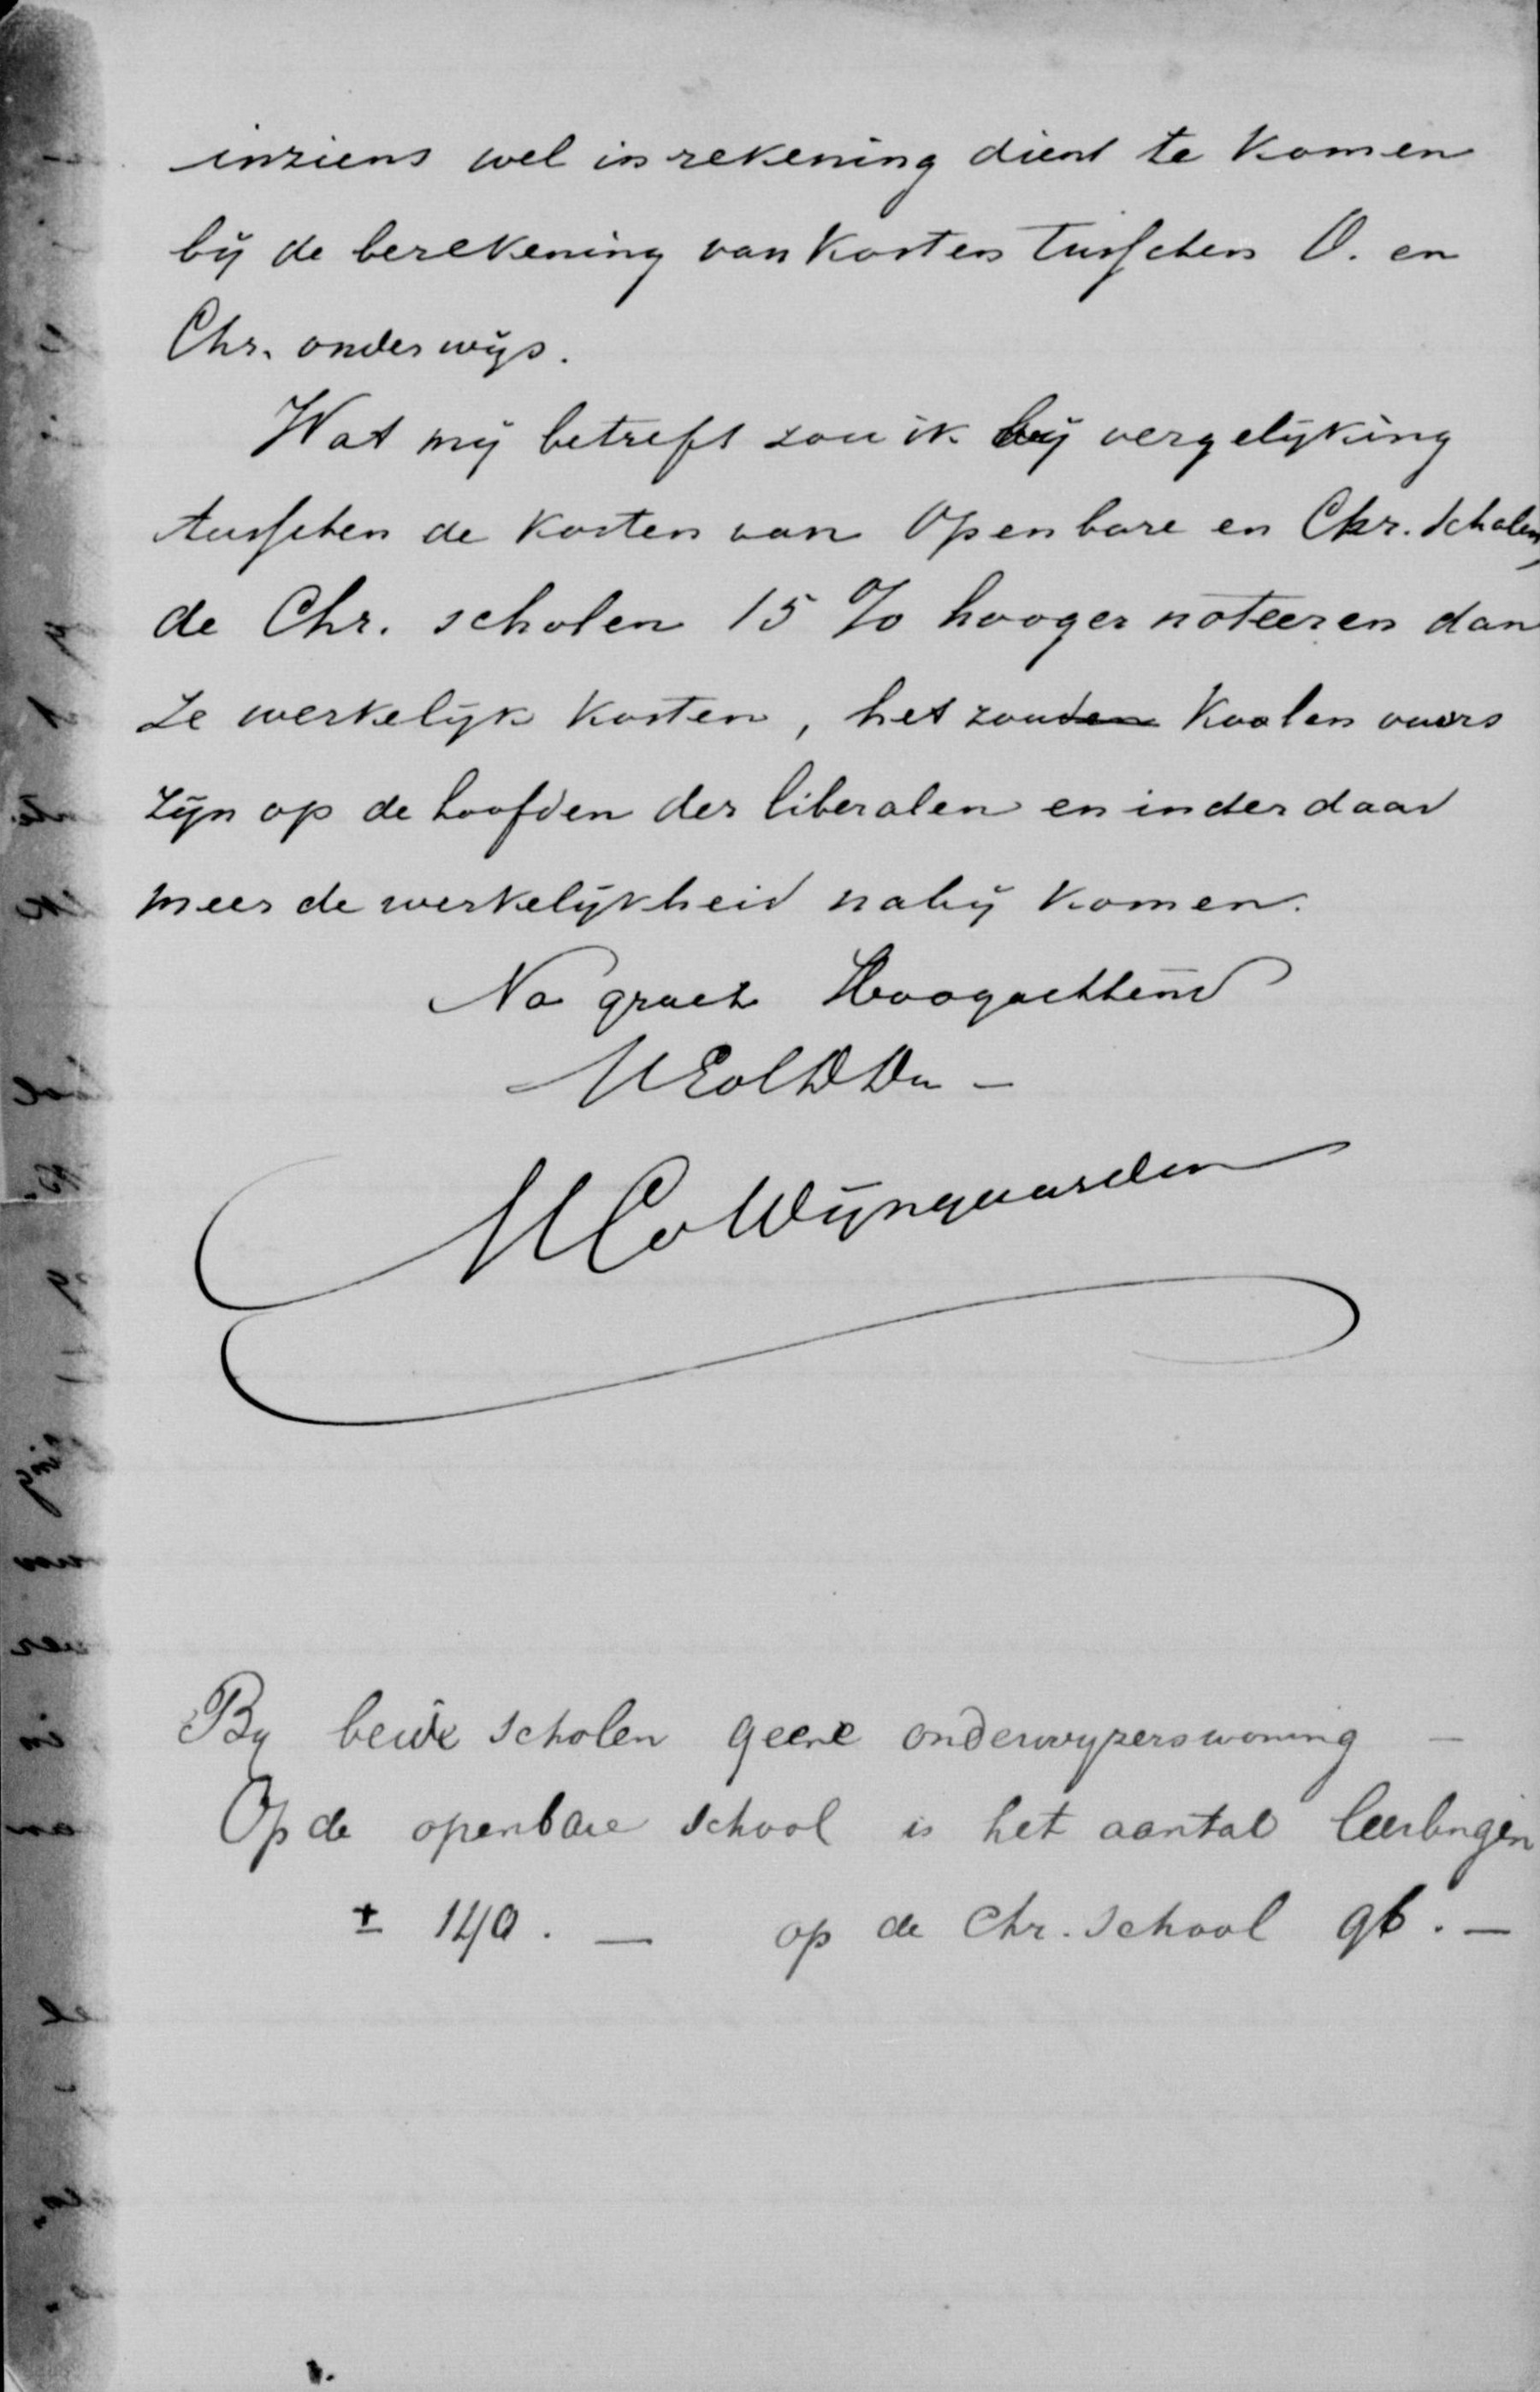 inziens wel in rekening dient te komen
bij de berekening van kosten tusschen O. en
Chr. onderwijs.
Wat mij betreft zou ik bij vergelijking
tusschen de kosten van Openbare en Chr. scholen,
de Chr. scholen 15 % hooger noteeren dan
ze werkelijk kosten, het zouden koolen vuurs
zijn op de hoofden der liberalen en inderdaad
meer de werkelijkheid nabij komen.
Na groet Hoogachtend
UEdlDDn -
MC v Wijngaarden
By beide scholen geene onderwyzerswoning -
Op de openbare school is het aantal leerlingen
± 140. - op de Chr. School 96. -